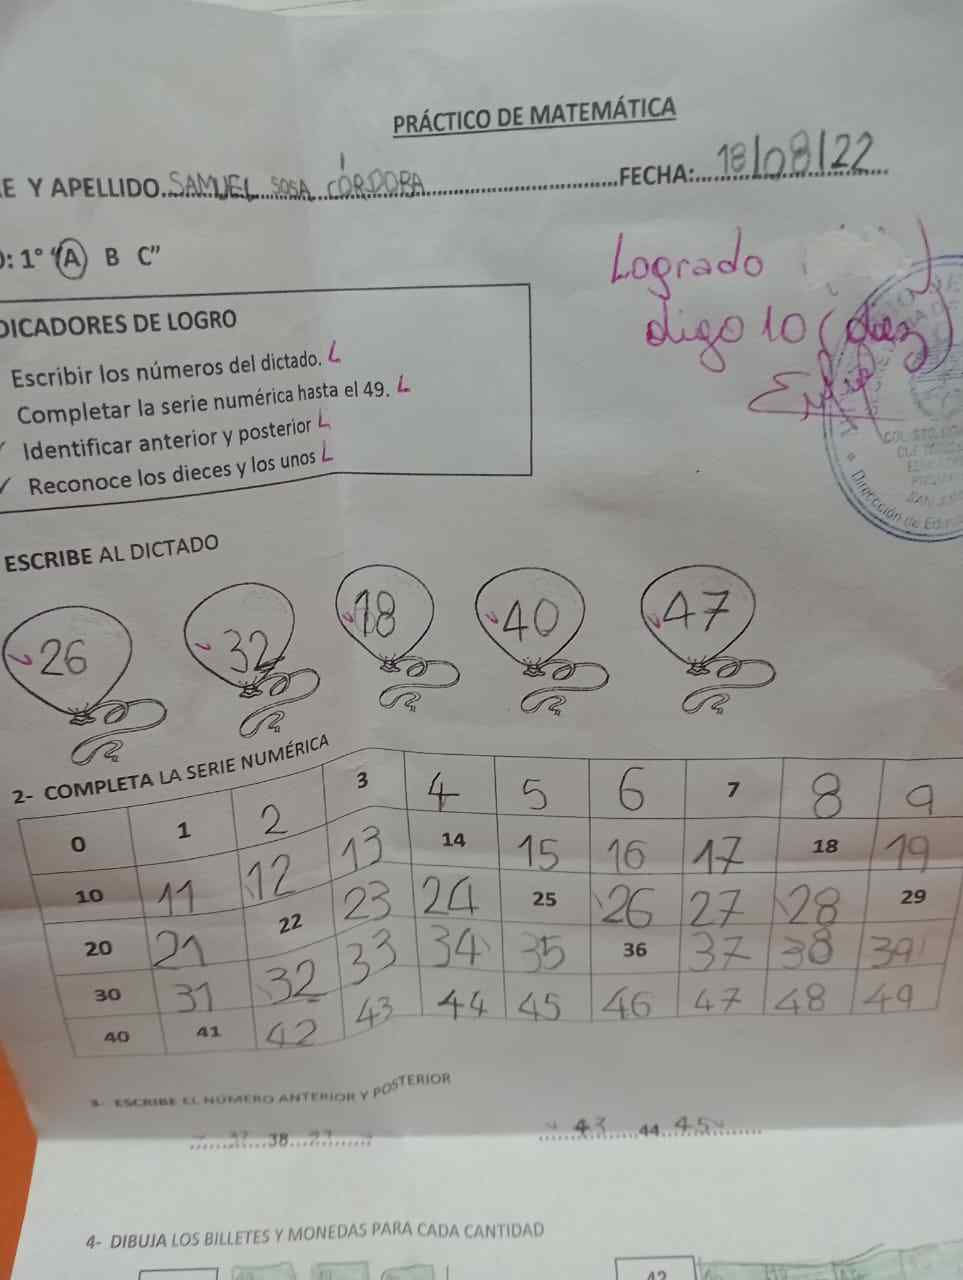 PRÁCTICO DE MATEMÁTICA
E Y APELLIDO...SAMUEL SOSA CÓRDOBA...FECHA:...18/08/22
: 1° "A B C"
Logrado
digo 10 (diez)
DICADORES DE LOGRO
Escribir los números del dictado. L
Completar la serie numérica hasta el 49. L
Identificar anterior y posterior L
✓ Reconoce los dieces y los unos L
Dirección de Edu
ESCRIBE AL DICTADO
26 32 18 40 47
2- COMPLETA LA SERIE NUMÉRICA
0 1 2 3 4 5 6 7 8 9
10 11 12 13 14 15 16 17 18 19
20 21 22 23 24 25 26 27 28 29
30 31 32 33 34 35 36 37 38 39
40 41 42 43 44 45 46 47 48 49
3- ESCRIBE EL NÚMERO ANTERIOR Y POSTERIOR
37 38 43 44 45
4- DIBUJA LOS BILLETES Y MONEDAS PARA CADA CANTIDAD
42